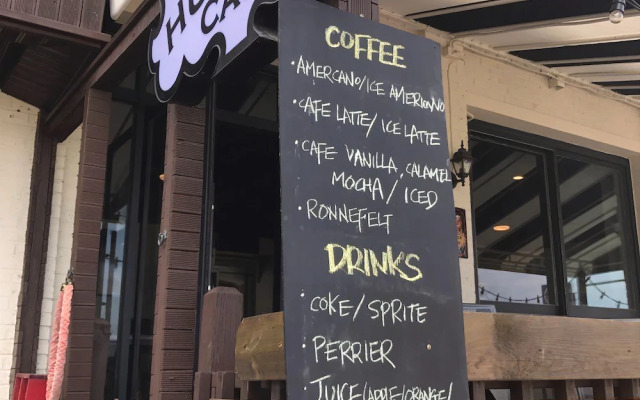 COFFEE
• AMERCANO/ICE AMERICANO
• CAFE LATTE/ ICE LATTE
• CAFE VANILLA, CALAMEL
MOCHA/ ICED
• RONNEFELT
DRINKS
• COKE/SPRITE
• PERRIER
• JUICE/APPLE/ORANGE/